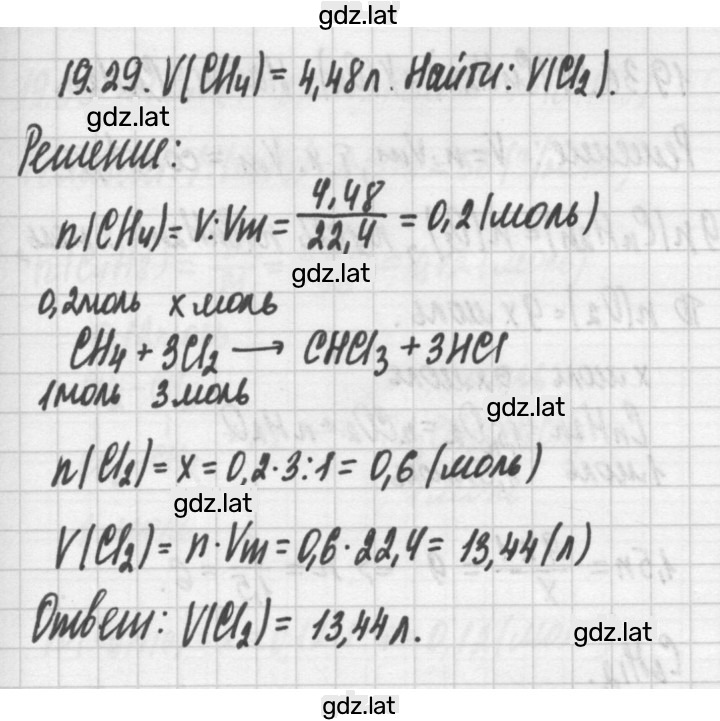 gdz.lat
19.29. V(CH₄) = 4,48 л. Найти: V(Cl₂).
gdz.lat
Решение:
n(CH₄) = V:Vm = 4,48/22,4 = 0,2 (моль)
gdz.lat
0,2 моль x моль
CH₄ + 3Cl₂ ⟶ CHCl₃ + 3HCl
1 моль 3 моль
gdz.lat
n(Cl₂) = x = 0,2·3:1 = 0,6 (моль)
gdz.lat
V(Cl₂) = n·Vm = 0,6·22,4 = 13,44 (л)
Ответ: V(Cl₂) = 13,44 л.
gdz.lat
gdz.lat